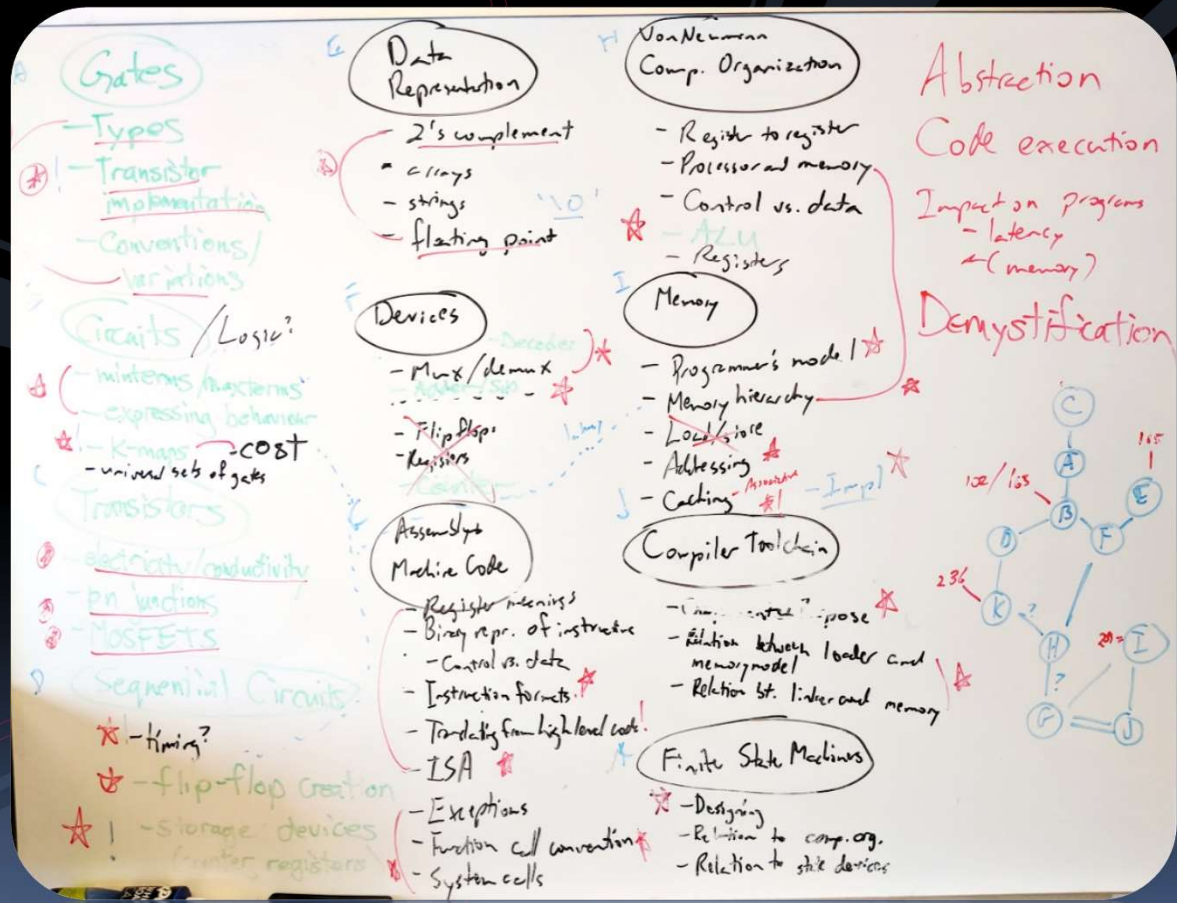 A
Gates
- Types
! - Transistor
implementation
- Conventions/
variations
Circuits /Logic?
- minterms/maxterms
- expressing behaviour
! - K-maps - COST
- universal sets of gates
C
Transistors
- electricity/conductivity
- pn junctions
- MOSFETS
D
Sequential Circuits?
! - timing?
- flip-flop creation
! - storage devices
counter, registers
Data
Representation
- 2's complement
- arrays
- strings '\0'
- floating point
F
Devices
- Decoder
- Mux/demux
- Adder/Sub
- Flip flops
- Registers
- Counter
Assembly+
Machine Code
- Register meanings
- Binary repr. of instructions
- Control vs. data
- Instruction formats
- Translating from high level code!
- ISA
- Exceptions
- Function call convention
- System calls
H
Von Neumann
Comp. Organization
- Register to register
- Processor and memory
- Control vs. data
- ALU
- Registers
I
Memory
- Programmer's model
- Memory hierarchy
- Load/store
- Addressing
- Caching - Associative - Impl
J
Compiler Toolchain
- Relation between loader and
memory model
- Relation bt. linker and memory
Finite State Machines
- Designing
- Relation to comp. org.
- Relation to state devices
Abstraction
Code execution
Impact on programs
- latency
(memory)
Demystification
C
A
165
E
B
D
F
236
K
?
H
I
?
G
J